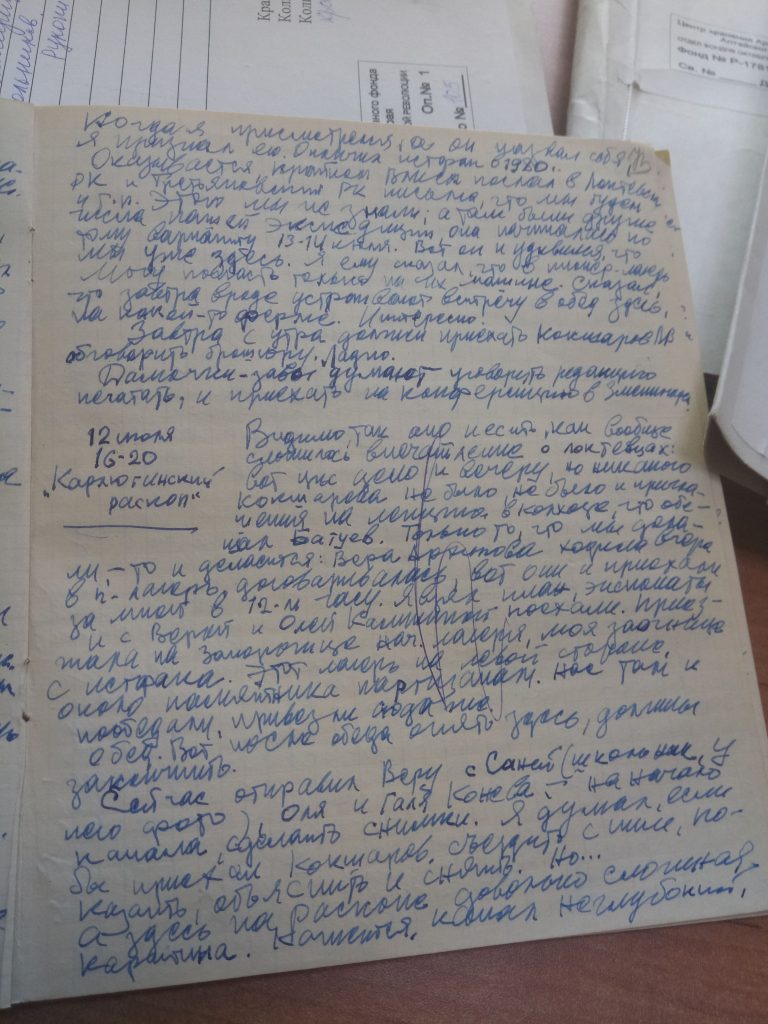 Кра
Кол
Коли
рукопи
ного фонда
ой революции
Оп. № 1
Центр хранения Ар
Алтайско
Фонд № Р-1781
Св. №
Когда я присмотрелся, а он назвал себя,
я признал его. Окончил истфак в 1980.
Оказывается, крайком ВЛКСМ послал в Локтевский
РК и Третьяковский РК письма, что мы будем
и т.п. Этого мы не знали, а там были другие
числа нашей экспедиции, она начиналась по
тому варианту 13-14 июля. Вот он и удивился, что
мы уже здесь. Я ему сказал, что в пионер-лагерь
могу попасть только на их машине. Сказал,
что завтра вроде устраивают встречу в обед здесь,
на какой-то ферме. Интересно.
Завтра с утра должен приехать Кокшаров ПВ
обговорить брошюру. Ладно.
Дамочки-завы думают уговорить редакцию
печатать, и приехать на конференцию в Змеиногорск
12 июля
16-20
"Карлютинский
раскоп"
Видимо, так оно и есть, как вообще
сложилось впечатление о локтевцах:
вот уже дело к вечеру, но никакого
Кокшарова не было, не было и пригла-
шений на лекцию в колхозе, что обе-
щал Батуев. Только то, что мы дела-
ли, - то и делается: Вера ходила вчера
в п-лагерь, договаривалась, вот они и приехали
за мной в 12-м часу. Я взял план, экспонаты
и с Верой и Олей поехали. Приез-
жала на нач. лагеря, моя заочница
с истфака. Этот лагерь на левой стороне,
около памятника партизанам. Нас там и
пообедали, привезли сюда же
обед. Вот, после обеда опять здесь, должны
закончить.
Сейчас отправил Веру с Саней (школьник, у
него фото), Оля и Галя Конева - на начало
канала, сделать снимки. Я думал, если
бы приехал Кокшаров, съездить с ним, по-
казать, объяснить и снять. Но...
А здесь на раскопе довольно сложная
картина. Кажется, канал неглубокий,